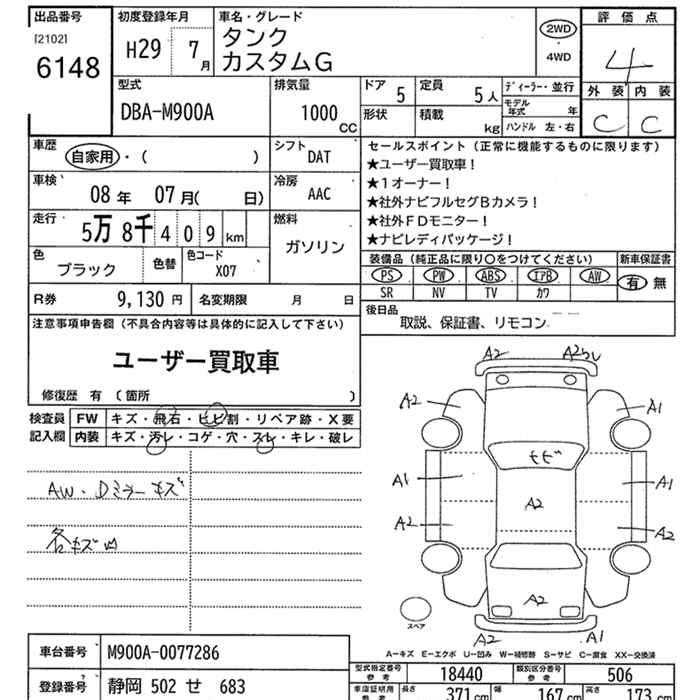 出品番号 初度登録年月 車名・グレード 評価点
[2102] 6148 H29 7月 タンク 2WD 4
カスタムG 4WD
型式 排気量 ドア 5 定員 5人 ディーラー・並行 外装 内装
DBA-M900A 1000 CC 形状 積載 kg モデル年式 年 C C
ハンドル 左・右
車歴 自家用・( ) シフト DAT セールスポイント(正常に機能するものに限ります)
★ユーザー買取車!
車検 08年 07月( 日) 冷房 AAC ★1オーナー!
★社外ナビフルセグBカメラ!
走行 5万8千409km 燃料 ガソリン ★社外FDモニター!
★ナビレディパッケージ!
色 ブラック 色替 色コード X07 装備品(純正品に限り○をつけてください) 新車保証書
PS PW ABS エアB AW 有 無
SR NV TV カワ
R券 9,130円 名変期限 月 日
後日品 取説、保証書、リモコン
注意事項申告欄(不具合内容等は具体的に記入して下さい)
ユーザー買取車
修復歴 有 (箇所 )
検査員 FW キズ・飛石・ヒビ割・リペア跡・X要
記入欄 内装 キズ・汚レ・コゲ・穴・スレ・キレ・破レ
A2 A2
A2 A1
ヒビ
A1 A1
A2
A2 A2
A2
A2 A1
AW・Dミラーキズ
各キズ凹
スペア
A−キズ E−エクボ U−凹み W−補修跡 S−サビ C−腐食 XX−交換済
車台番号 M900A-0077286
型式指定番号 参考 18440 類別区分番号 参考 506
登録番号 静岡 502 せ 683
車庫証明用 参考 長さ 371cm 幅 167cm 高さ 173cm